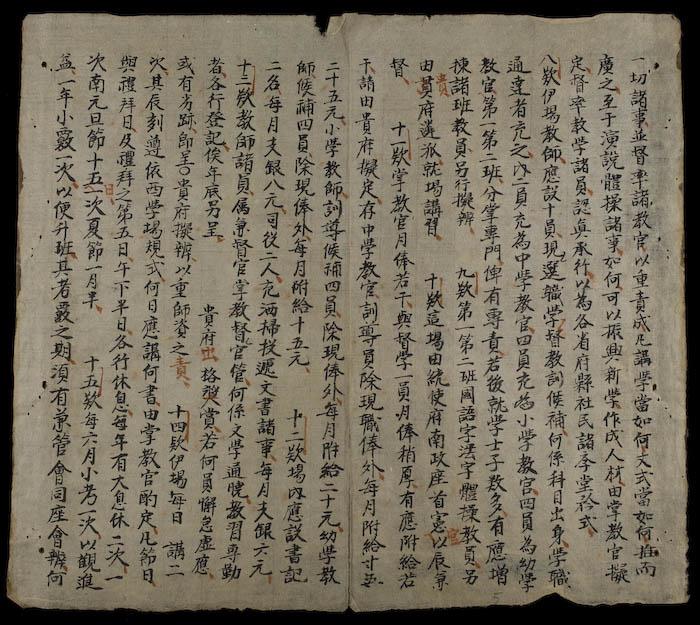 一切諸事並督率諸教官以重責成凡講學當如何文式當如何推而
廣之至于演說體操諸事如何可以振興新學作成人材由掌教官擬
定督率教學諸員認真承行以為各省府縣社民諸學堂矜式
八欵伊場教師應設十員現選職學督教訓候補何係科目出身學職
通達者充之內一員充為中學教官四員充為小學教官四員為幼學
教官第一第二班分掌專門俾有專責若後就學士子数多有應增
揀諸班教員另行擬辨 九欵第一第二班國語字法字體操教員另
由貴府遴派就場講習 十欵這場由統使府南政座首憲以辰兼
督 十一欵掌教官月俸若干與督學一員月俸稍厚有應附給若
干請由貴府擬定存中學教官訓導員除現職俸外每月附給
二十五元小學教師訓導候補四員除現俸外每月附給二十元幼學教
師候補四員除現俸外每月附給十五元 十二欵場內應設書記
二名每月支銀八元司役二人充洒掃投遞文書諸事每月支銀六元
十三欵教師諸貞属兼督官掌教督官管何係文學通曉教習專勤
者各行登記俟年辰另呈 貴府出格奬賞若何員懈怠虛應
或有劣跡即呈貴府擬辨以重師資之責 十四欵伊場每日 講二
次其辰刻遵依西學場規式何日應講何書由掌教官酌定凡節日
與禮拜日及禮拜之第五日午下半日各行休息每年有大息休二次一
次南元旦節十五日一次夏節一月半 十五欵每六月小考一次以觀進
益一年小覈一次以便升班其考覈之期須有兼管會同座會辨何